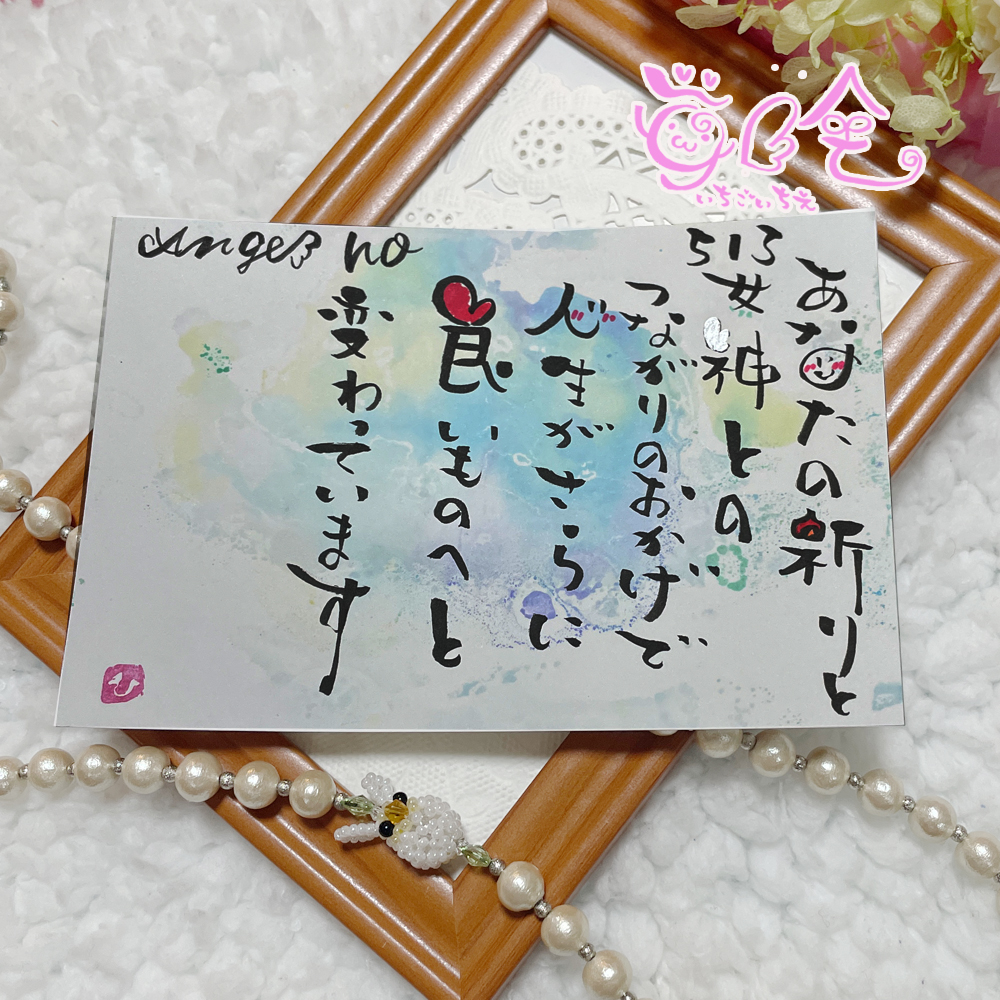 Angel no 513
あなたの祈りと
女神との
つながりのおかげで
人生がさらに
良いものへと
変わっています
いちごいちえ